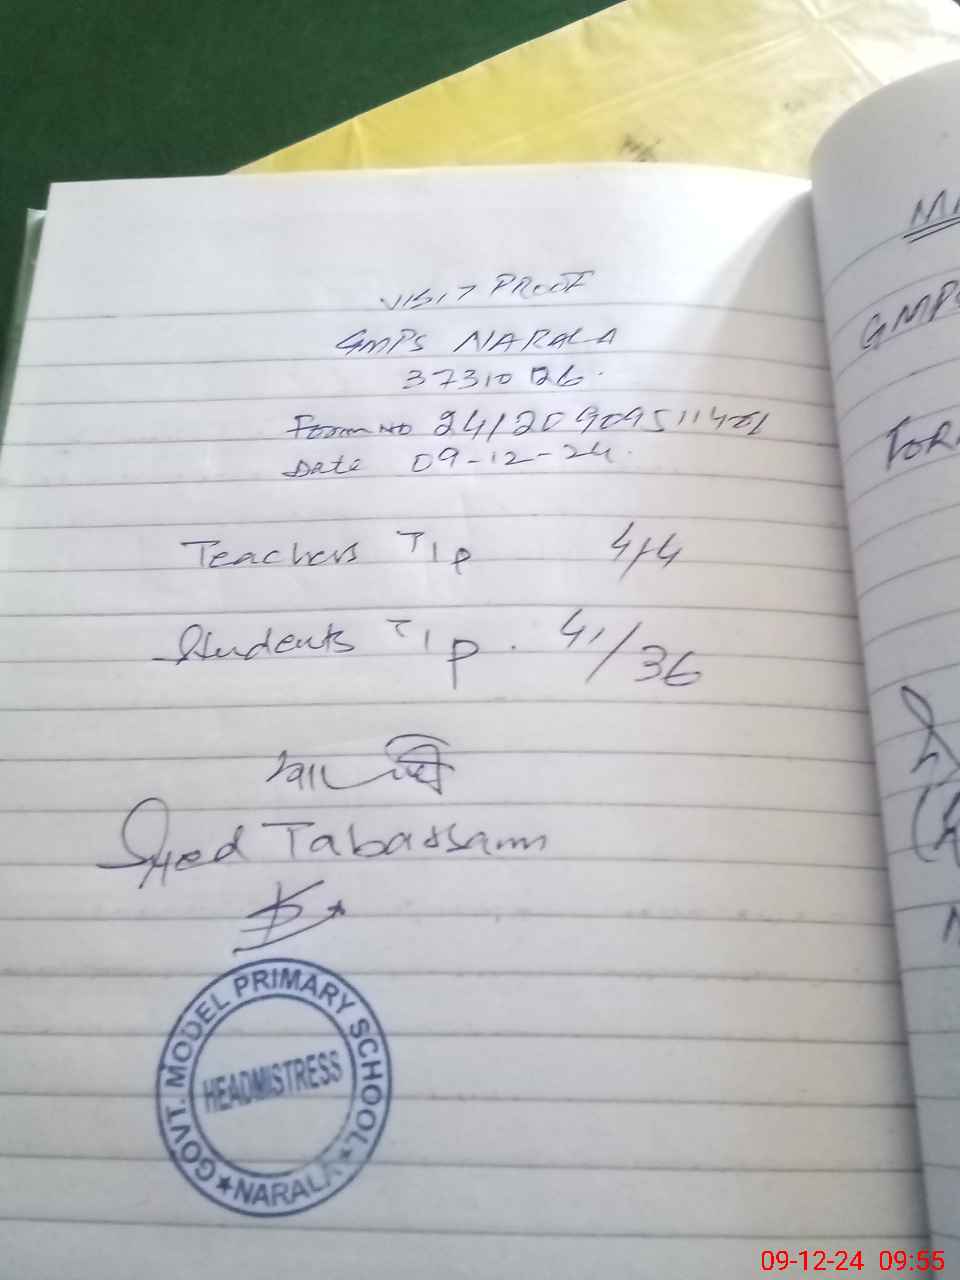 VISIT PROOF
GMPS NARALA
37310126.
Form No 2412090951142
Date 09-12-24.
Teachers T/P 4/4
Students T/P. 41/36
Syed Tabassam
GOVT. MODEL PRIMARY SCHOOL
HEADMISTRESS
★NARALA★
GMPS
09-12-24 09:55